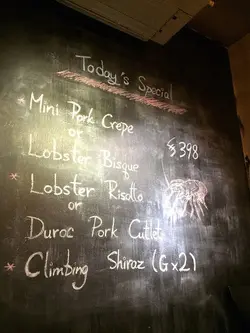 Today's Special
* Mini Pork Crepe
or
Lobster Bisque
$398
* Lobster Risotto
or
Duroc Pork Cutlet
* Climbing Shiraz (Gx2)